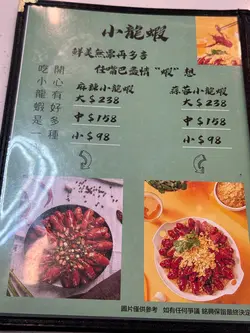 小龍蝦
鮮美無需再多言
任嘴巴盡情“蝦”想
開心有好多種
吃小龍蝦是
麻辣小龍蝦
大 $ 238
中 $ 158
小 $ 98
蒜蓉小龍蝦
大 $ 238
中 $ 158
小 $ 98
圖片僅供參考 如有任何爭議 銘將保留最終決定